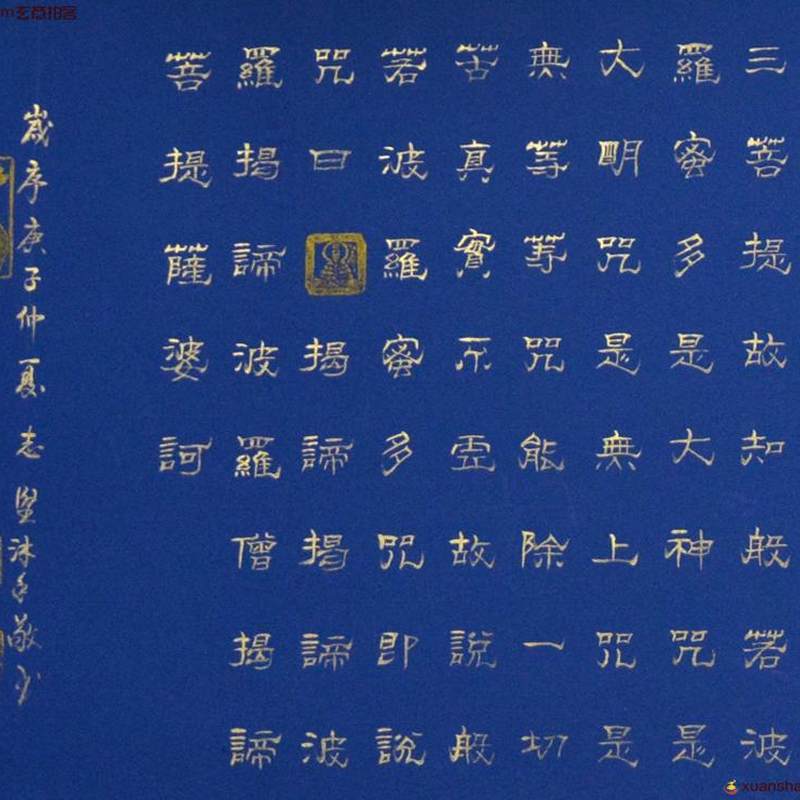 三菩提故知般若波
羅蜜多是大神咒是
大明咒是無上咒是
無等等咒能除一切
苦真實不虛故說般
若波羅蜜多咒即說
咒曰揭諦揭諦波
羅揭諦波羅僧揭諦
菩提薩婆訶
歲序庚子仲夏志堅沐手敬书
xuansha